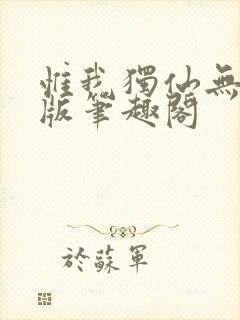 惟我獨仙無
版筆趣閣
於蘇軍